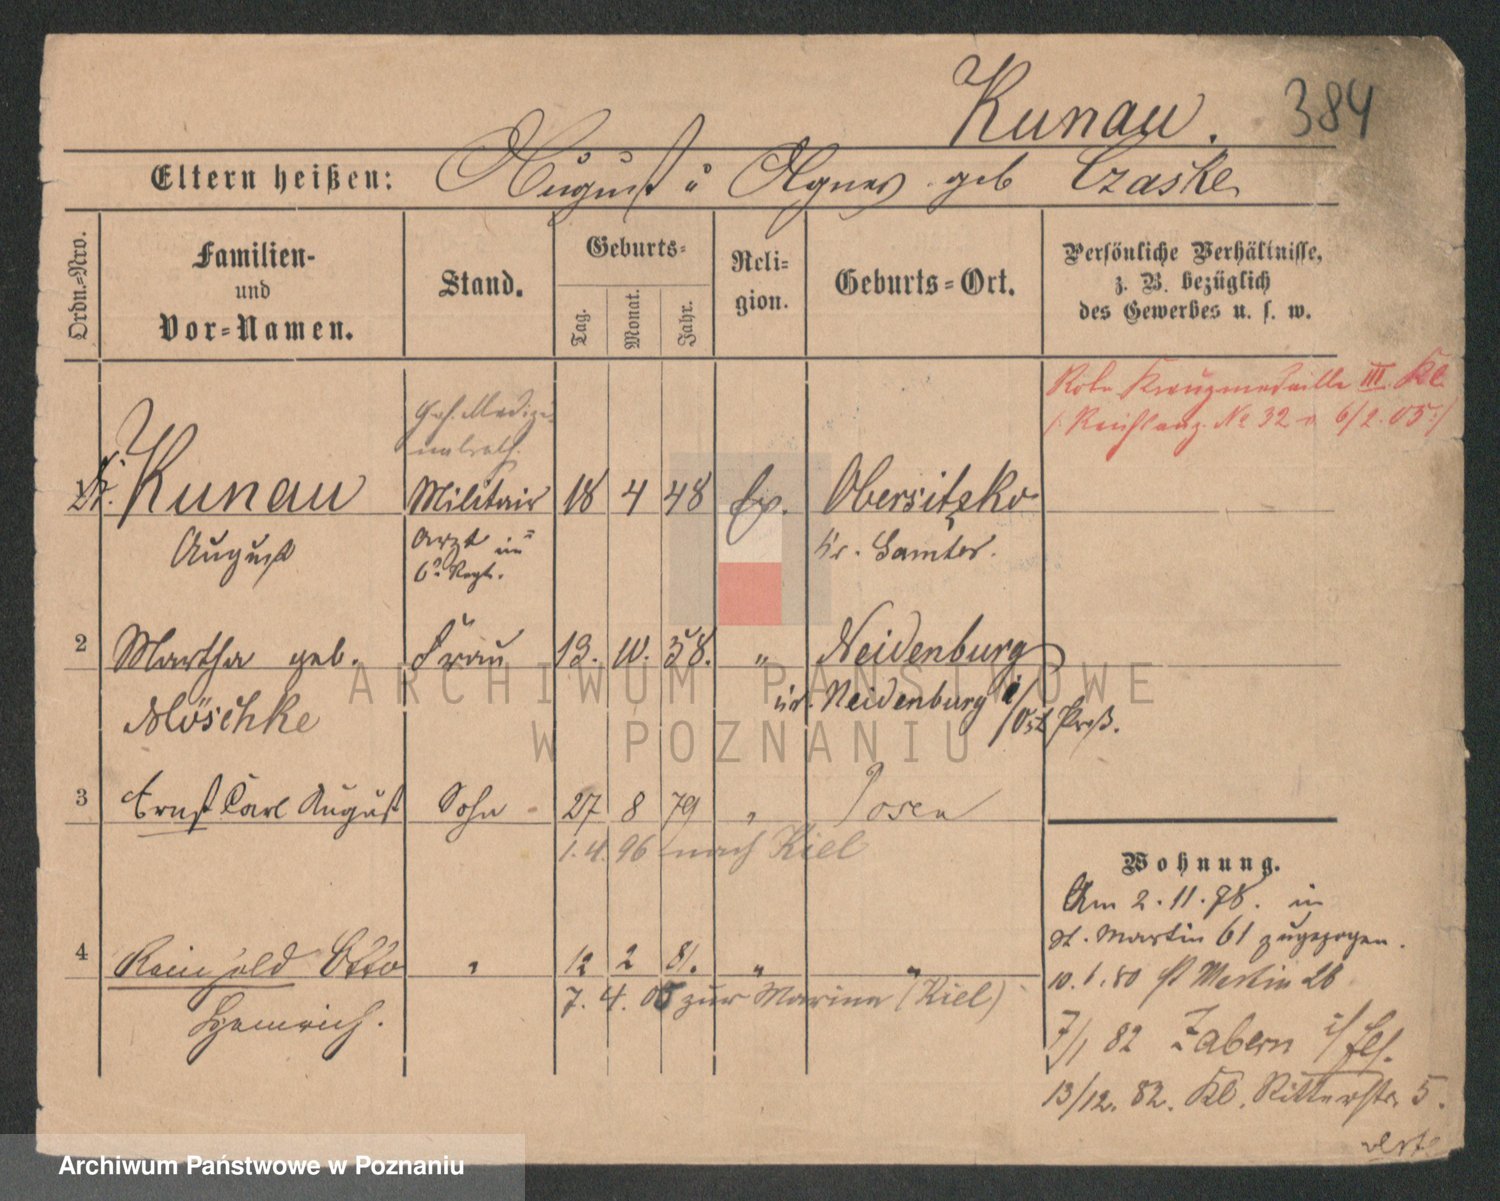 Kunau. 384
Eltern heißen: August u Agnes geb Czaske
Ordn.=Nro.
Familien-
und
Vor=Namen.
Stand.
Geburts=
Tag.
Monat.
Jahr.
Reli=
gion.
Geburts=Ort.
Persönliche Verhältnisse,
z. B. bezüglich
des Gewerbes u. s. w.
Rote Kreuzmedaille III. Kl.
(: Reichsanz. No 32 v. 6/2. 05 :)
Geh. Medizi-
nalrath.
1 Dr. Kunau Militair 18 4 48 Ev. Obersitzko
August Arzt im Kr. Samter.
6. Regt.
2 Martha geb. Frau 13. 10. 58. " Neidenburg
Möschke Kr. Neidenburg i/Ost Preß.
3 Ernst Carl August Sohn 27 8 79 " Posen
1. 4. 96 nach Kiel
4 Reinhold Otto " 12 2 81. " "
Heinrich. 7. 4. 05 zur Marine (Kiel)
Wohnung.
Am 2. 11. 78. in
St. Martin 61 zugezogen.
10. 1. 80 St Martin 26
7/1 82 Zabern i/Els.
13/12. 82. Kl. Ritterstr. 5.
ARCHIWUM PAŃSTWOWE
W POZNANIU
Archiwum Państwowe w Poznaniu